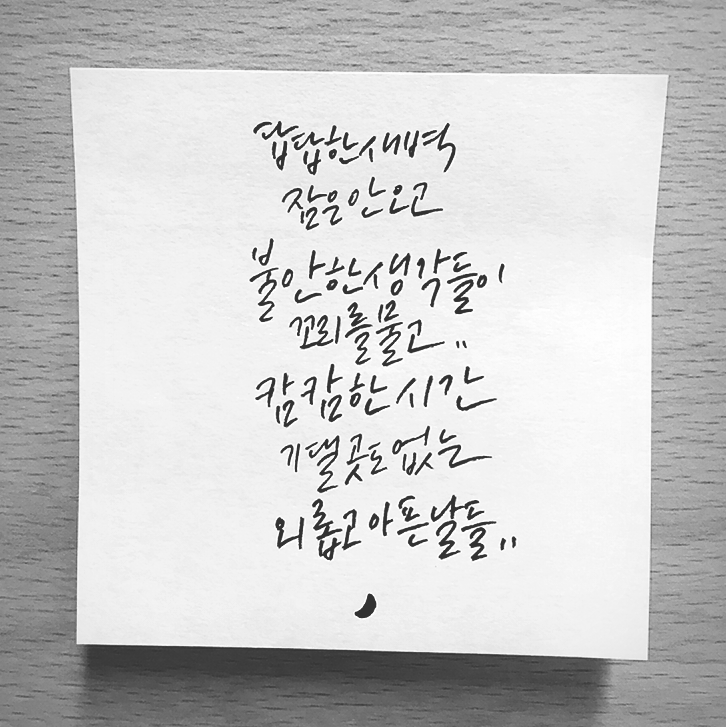 답답한 새벽
잠은 안 오고
불안한 생각들이
꼬리를 물고..
캄캄한 시간
기댈 곳도 없는
외롭고 아픈 날들..